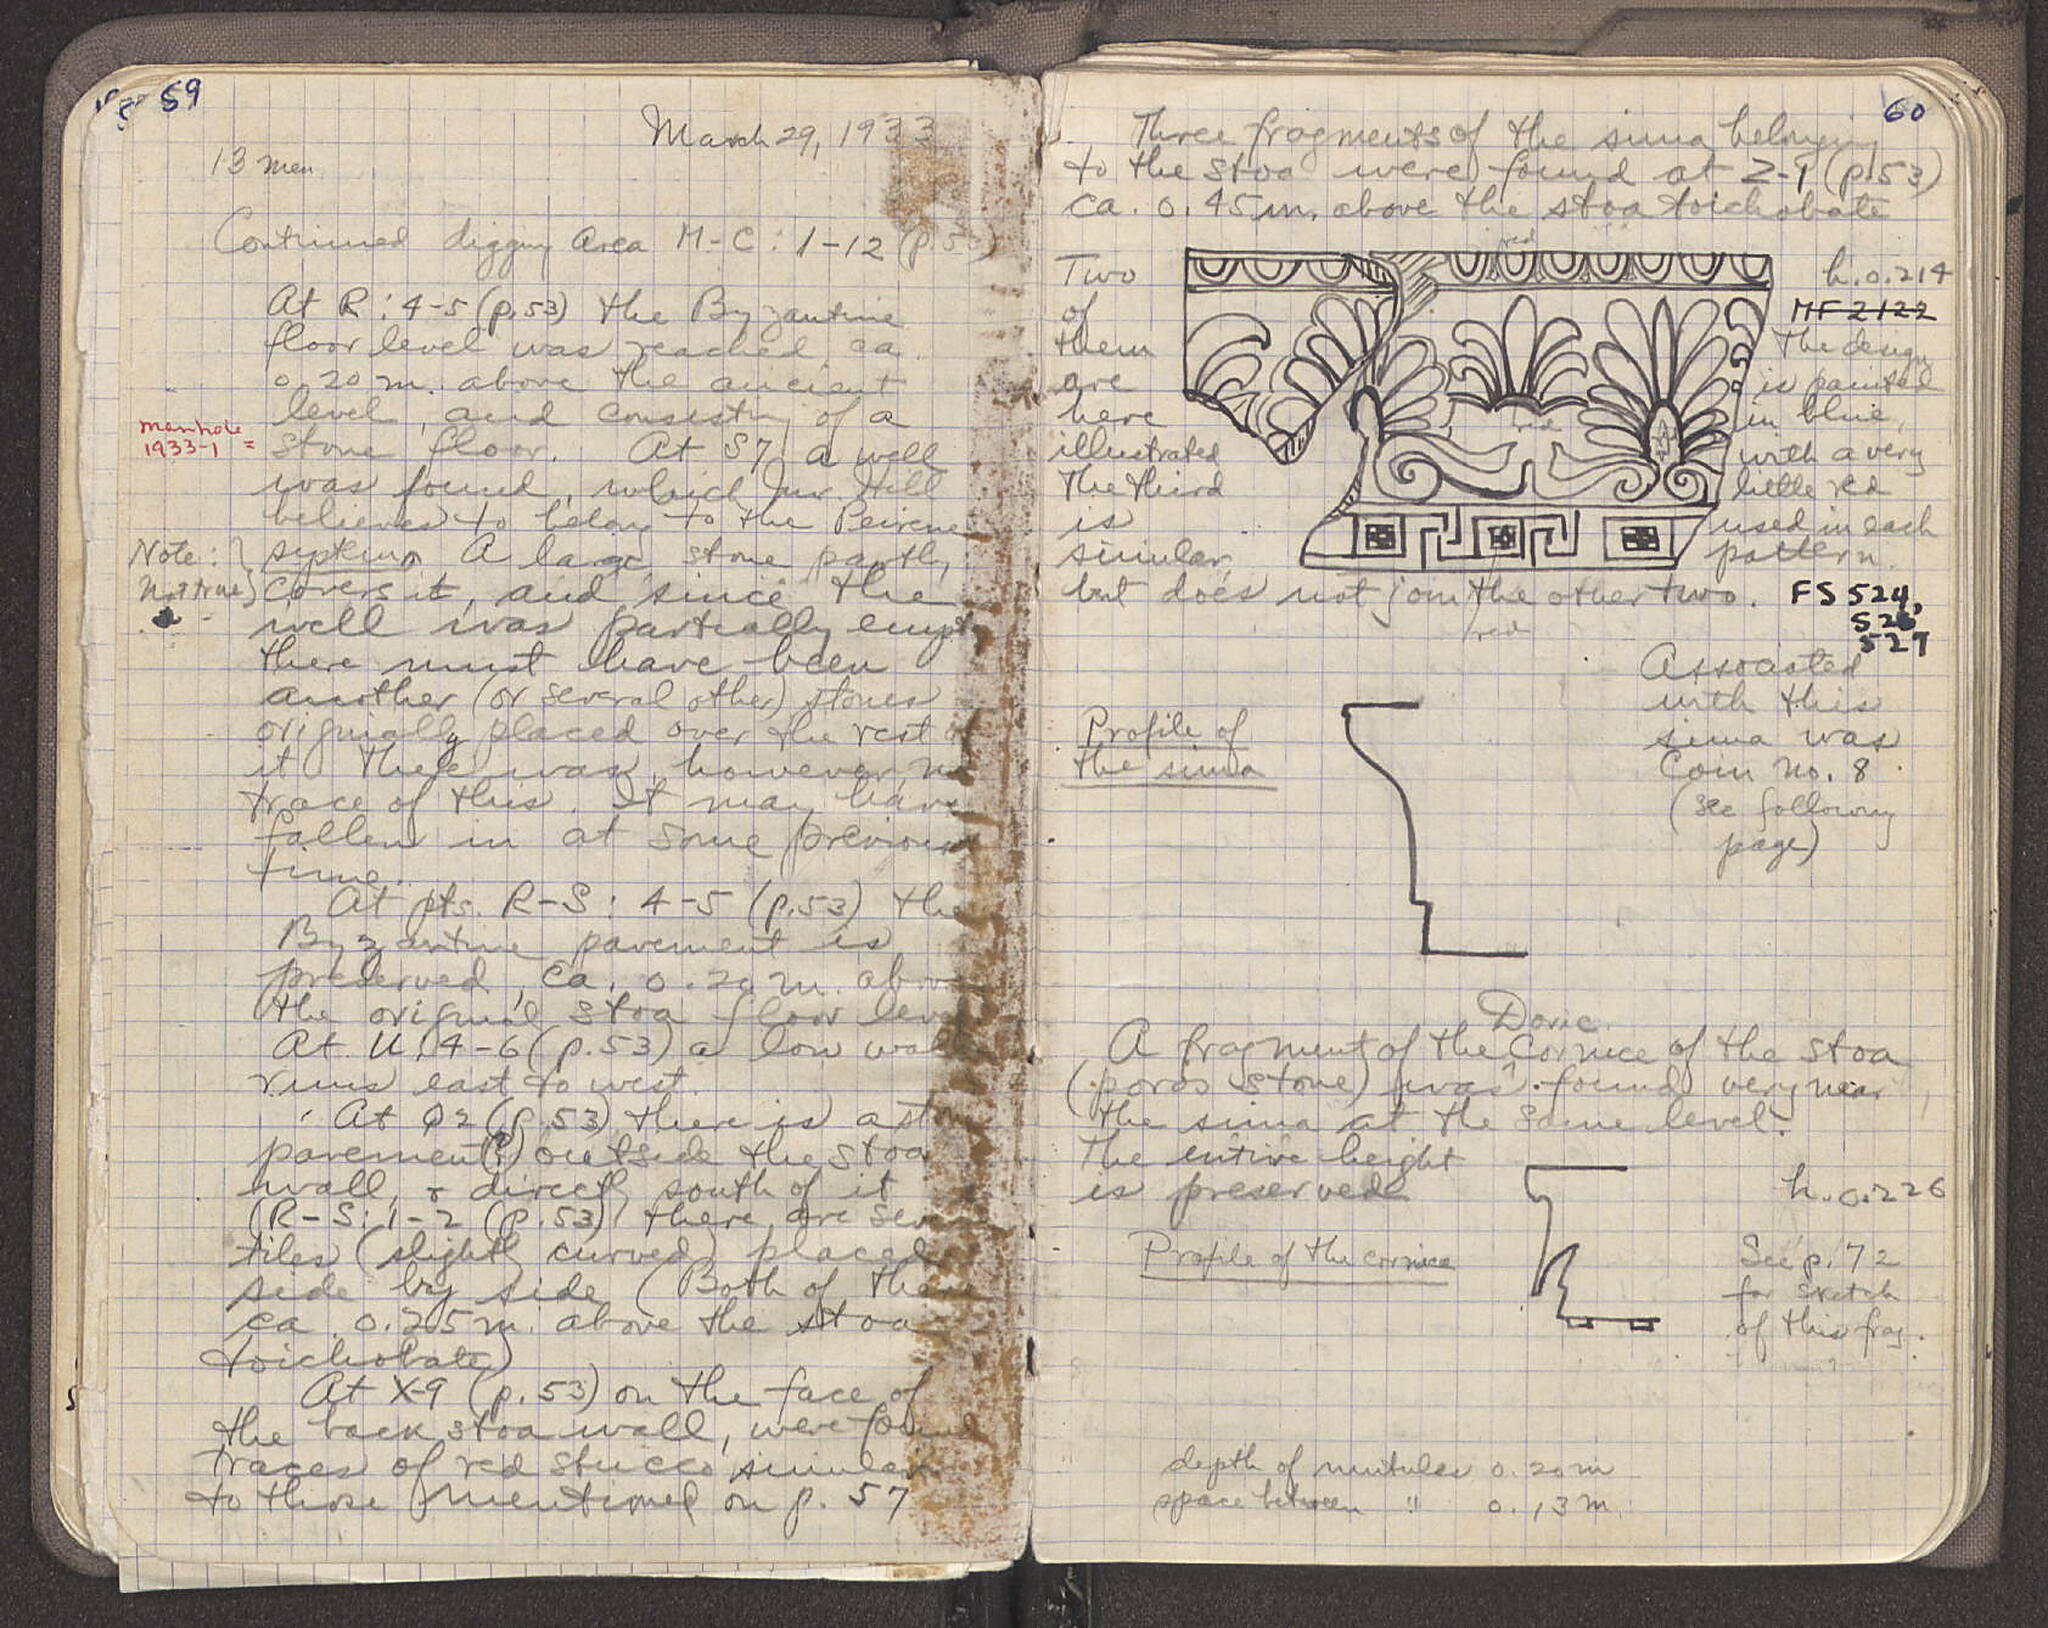 59
March 29, 1933
13 men
Continued digging Area M-C: 1-12 (p.53)
At R: 4-5 (p.53) the Byzantine
floor level was reached, ca.
0.20 m. above the ancient
level, and consisting of a
manhole
1933-1 =
stone floor. At S7 a well
was found, which Mr. Hill
believes to belong to the Peirene
Note: } system. A large stone partly
Not true} covers it, and since the
well was partially empty
there must have been
another (or several other) stones
originally placed over the rest of
it. There was, however, no
trace of this. It may have
fallen in at some previous
time.
At pts. R-S: 4-5 (p.53) the
Byzantine pavement is
preserved, ca. 0.20 m. above
the original stoa floor level
At U: 4-6 (p.53) a low wall
runs east to west.
At Q2 (p.53) there is a stone
pavement(?) outside the stoa
wall, & directly south of it
(R-S: 1-2 (p.53) there are seven
tiles (slightly curved) placed
side by side (Both of them
ca 0.25 m. above the stoa
toichobate)
At X-9 (p.53) on the face of
the back stoa wall, were found
traces of red stucco similar
to those mentioned on p. 57
60
Three fragments of the sima belonging
to the stoa were found at Z-9 (p.53)
ca. 0.45 m. above the stoa toichobate
red
Two
of
them
are
here
illustrated
The third
is
similar,
but does not join the other two.
red
red
h. 0.214
MF 2122
The design
is painted
in blue,
with a very
little red
used in each
pattern.
FS 524,
526
527
Associated
with this
sima was
Coin no. 8
(see following
page)
Profile of
the sima
Doric
A fragment of the ^ cornice of the stoa
(poros stone) was found very near
the sima at the same level.
The entire height
is preserved
h. 0.226
Profile of the cornice
See p. 72
for sketch
of this frag.
depth of mutules 0.20 m
space between " 0.13 m.